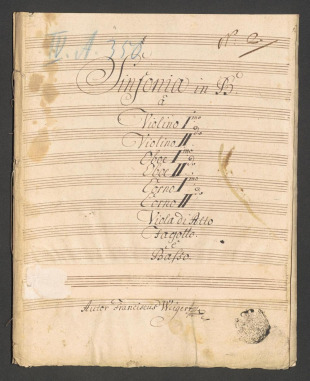 IV. A. 358.
No. 2.
Sinfonia in B
à
Violino Imo
Violino IIdo
Oboe Imo
Oboe IIdo
Corno Imo
Corno IIdo
Viola di Alto
Fagotto
è
Basso
Autor Franciscus Weigert